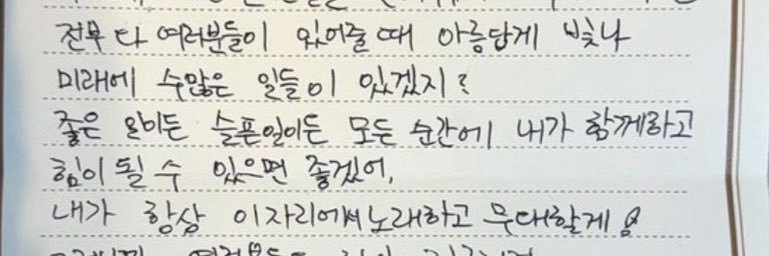 전부 다 여러분들이 있어줄 때 아름답게 빛나
미래에 수많은 일들이 있겠지?
좋은 일이든 슬픈일이든 모든 순간에 내가 함께하고
힘이 될 수 있으면 좋겠어,
내가 항상 이자리에서 노래하고 무대할게